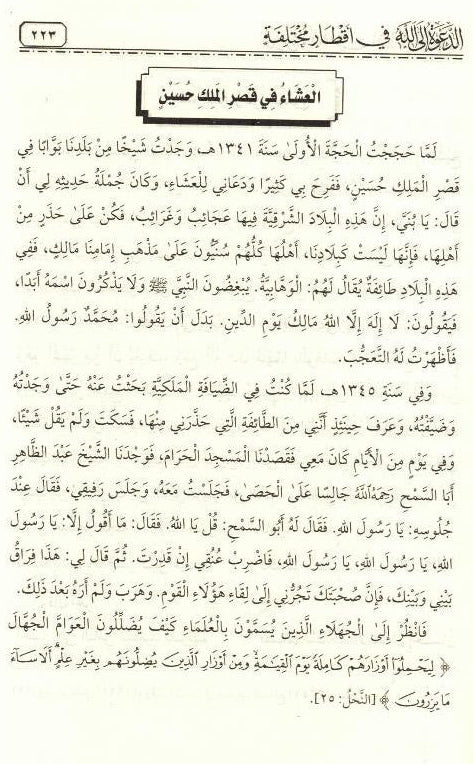 الدَّعْوَةُ إِلَى اللهِ فِي أَقْطَارٍ مُخْتَلِفَةٍ
٢٢٣
الْعَشَاءُ فِي قَصْرِ المَلِكِ حُسَيْنٍ
لَمَّا حَجَجْتُ الْحَجَّةَ الْأُولَى سَنَةَ ١٣٤١هـ، وَجَدْتُ شَيْخًا مِنْ بَلَدِنَا بَوَّابًا فِي
قَصْرِ الْمَلِكِ حُسَيْنٍ، فَفَرِحَ بِي كَثِيرًا وَدَعَانِي لِلْعَشَاءِ، وَكَانَ جُمْلَةُ حَدِيثِهِ لِي أَنْ
قَالَ: يَا بُنَيَّ، إِنَّ هَذِهِ الْبِلَادَ الشَّرْقِيَّةَ فِيهَا عَجَائِبُ وَغَرَائِبُ، فَكُنْ عَلَى حَذَرٍ مِنْ
أَهْلِهَا، فَإِنَّهَا لَيْسَتْ كَبِلَادِنَا، أَهْلُهَا كُلُّهُمْ سُنِّيُّونَ عَلَى مَذْهَبِ إِمَامِنَا مَالِكٍ، فَفِي
هَذِهِ الْبِلَادِ طَائِفَةٌ يُقَالُ لَهُمُ: الْوَهَّابِيَّةُ. يُبْغِضُونَ النَّبِيَّ ﷺ وَلَا يَذْكُرُونَ اسْمَهُ أَبَدًا،
فَيَقُولُونَ: لَا إِلَهَ إِلَّا اللهُ مَالِكُ يَوْمِ الدِّينِ. بَدَلَ أَنْ يَقُولُوا: مُحَمَّدٌ رَسُولُ اللهِ.
فَأَظْهَرْتُ لَهُ التَّعَجُّبَ.
وَفِي سَنَةِ ١٣٤٥هـ، لَمَّا كُنْتُ فِي الضِّيَافَةِ الْمَلَكِيَّةِ بَحَثْتُ عَنْهُ حَتَّى وَجَدْتُهُ
وَضَيَّفْتُهُ، وَعَرَفَ حِينَئِذٍ أَنَّنِي مِنَ الطَّائِفَةِ الَّتِي حَذَّرَنِي مِنْهَا، فَسَكَتَ وَلَمْ يَقُلْ شَيْئًا،
وَفِي يَوْمٍ مِنَ الْأَيَّامِ كَانَ مَعِي فَقَصَدْنَا الْمَسْجِدَ الْحَرَامَ، فَوَجَدْنَا الشَّيْخَ عَبْدَ الظَّاهِرِ
أَبَا السَّمْحِ رَحِمَهُ اللَّهُ جَالِسًا عَلَى الْحَصَى، فَجَلَسْتُ مَعَهُ، وَجَلَسَ رَفِيقِي، فَقَالَ عِنْدَ
جُلُوسِهِ: يَا رَسُولَ اللهِ. فَقَالَ لَهُ أَبُو السَّمْحِ: قُلْ يَا اللهُ. فَقَالَ: مَا أَقُولُ إِلَّا: يَا رَسُولَ
اللهِ، يَا رَسُولَ اللهِ، يَا رَسُولَ اللهِ، فَاضْرِبْ عُنُقِي إِنْ قَدِرْتَ. ثُمَّ قَالَ لِي: هَذَا فِرَاقُ
بَيْنِي وَبَيْنِكَ، فَإِنَّ صُحْبَتَكَ تَجُرُّنِي إِلَى لِقَاءِ هَؤُلَاءِ الْقَوْمِ. وَهَرَبَ وَلَمْ أَرَهُ بَعْدَ ذَلِكَ.
فَانْظُرْ إِلَى الْجُهَلَاءِ الَّذِينَ يُسَمَّوْنَ بِالْعُلَمَاءِ كَيْفَ يُضَلِّلُونَ الْعَوَامَّ الْجُهَّالَ
﴿ لِيَحْمِلُوٓا۟ أَوْزَارَهُمْ كَامِلَةً يَوْمَ ٱلْقِيَٰمَةِ وَمِنْ أَوْزَارِ ٱلَّذِينَ يُضِلُّونَهُم بِغَيْرِ عِلْمٍ أَلَا سَآءَ
مَا يَزِرُونَ ﴾ [النَّحْلُ: ٢٥].